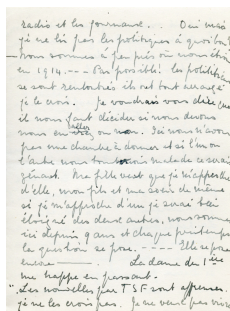 radios et les journaux... Oui mais
je ne lis pas les politiques à quoi bon?
nous sommes à peu près où nous étions
en 1914. --- Pas possible! les politiciens
se sont rembarrés ils ont tout arrangé
je le crois. Je voudrais vous dire que
il nous faut décider si nous devons
nous en aller ou non. Ici nous n'avons
pas une chambre à donner et si l'un ou
l'autre nous malade ce serait
gênant. Ma fille veut que je m'approche
d'elle, mon fils et ma soeur de même
si je m'approche d'un je serai bien
éloigné des deux autres, nous sommes
ici depuis 9 ans et chaque printemps
la question se pose. ---- Elle se pose
encore ——. La dame du 1ème
me happe en passant.
"Les nouvelles par TSF sont affreuses.
je ne les crois pas. Je ne veux pas vivre